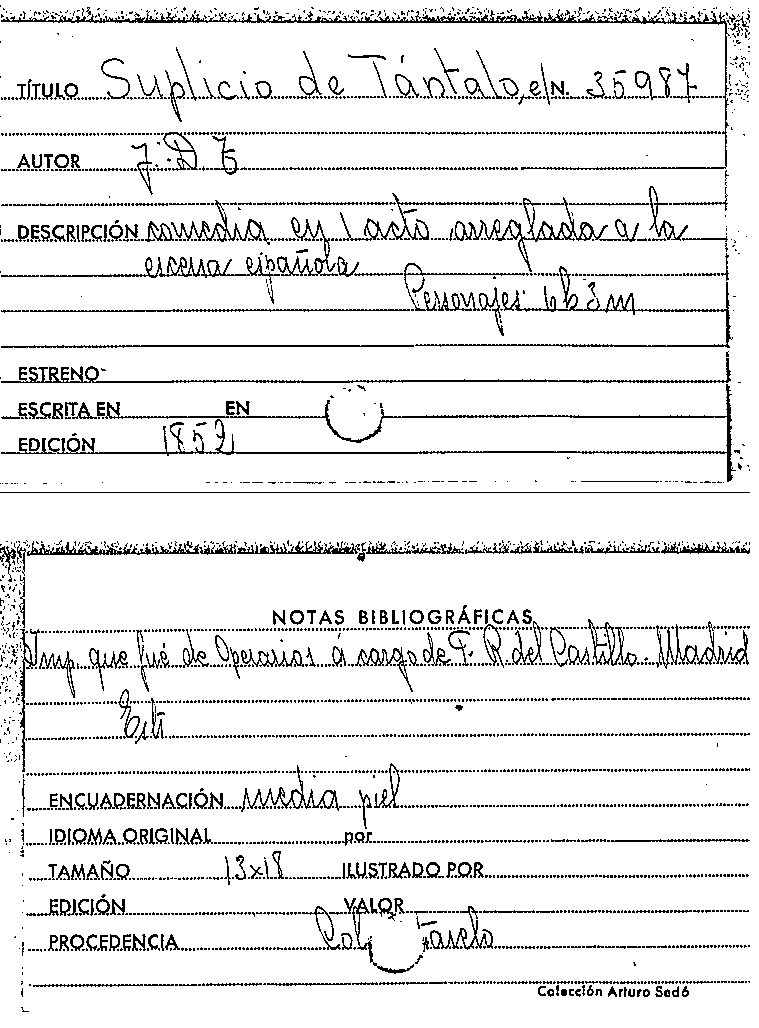 TÍTULO Suplicio de Tántalo, el N. 35987
AUTOR J. D. T
DESCRIPCIÓN comedia en 1 acto arreglada a la
escena española
Personajes: 6h 3m
ESTRENO
ESCRITA EN EN
EDICIÓN 1852
NOTAS BIBLIOGRÁFICAS
Imp. que fué de Operarios á cargo de F. R. del Castillo. Madrid
ENCUADERNACIÓN media piel
IDIOMA ORIGINAL por
TAMAÑO 13x18 ILUSTRADO POR
EDICIÓN VALOR
PROCEDENCIA
Colección Arturo Sedó